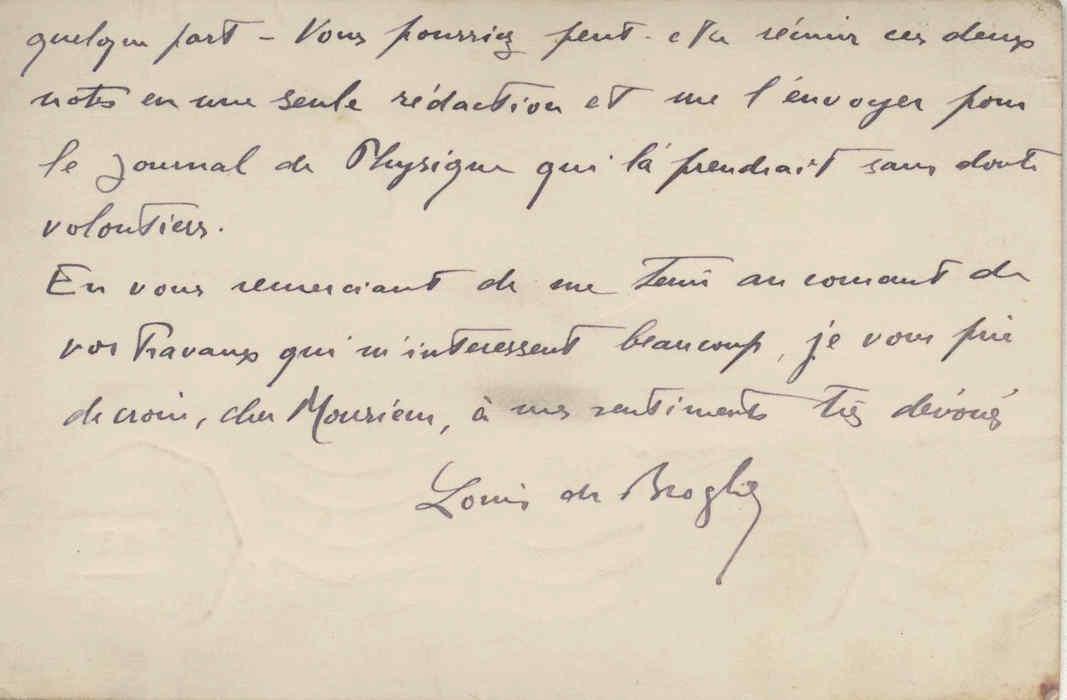 quelque part – Vous pourriez peut-être réunir ces deux
notes en une seule rédaction et me l'envoyer pour
le Journal de Physique qui la prendrait sans doute
volontiers.
En vous remerciant de me tenir au courant de
vos travaux qui m'interessent beaucoup, je vous prie
de croire, cher Monsieur, à mes sentiments très dévoués
Louis de Broglie